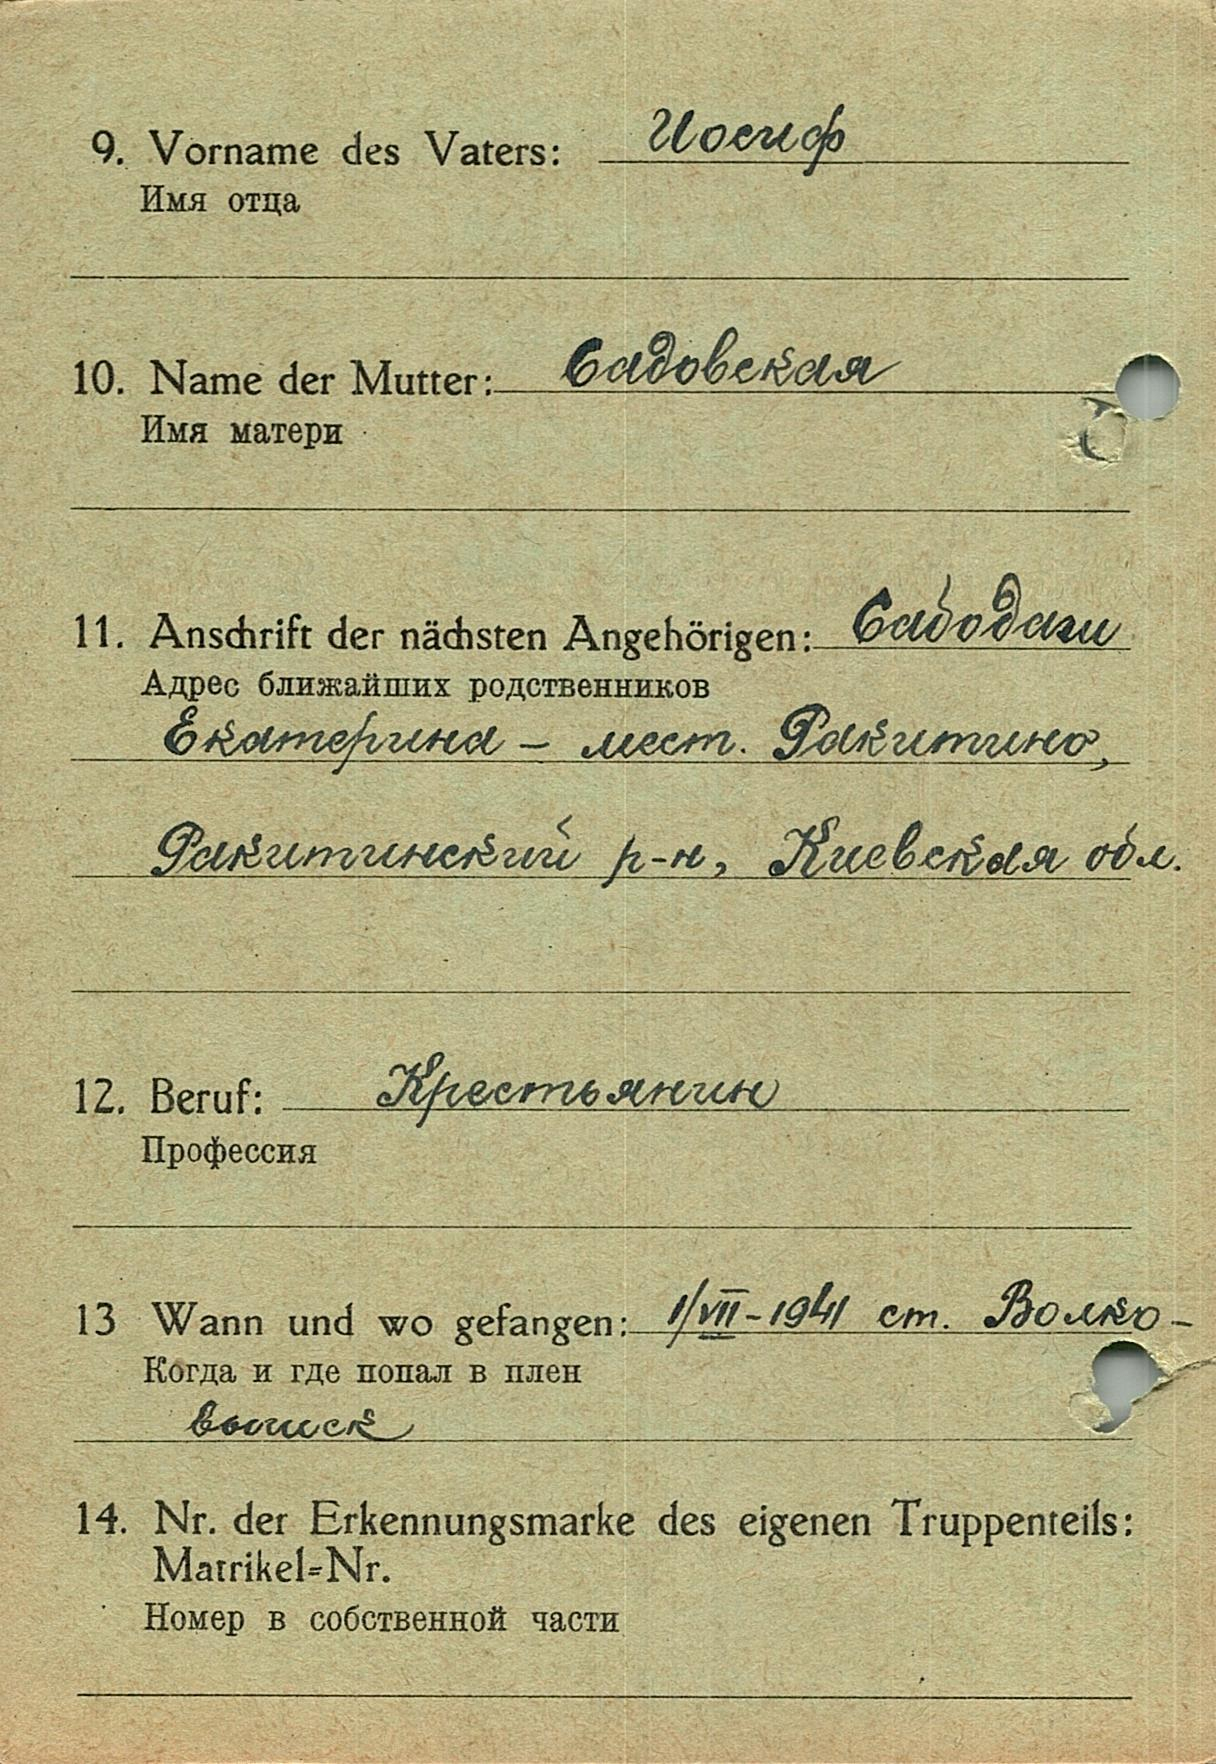 9. Vorname des Vaters: Иосиф
Имя отца
10. Name der Mutter: Садовская
Имя матери
11. Anschrift der nächsten Angehörigen:
Адрес ближайших родственников
Екатерина – мест. Ракитино,
Ракитинский р-н, Киевская обл.
12. Beruf: Крестьянин
Профессия
13 Wann und wo gefangen: 1/VII-1941 ст. Волко-
Когда и где попал в плен
выиск
14. Nr. der Erkennungsmarke des eigenen Truppenteils:
Matrikel=Nr.
Номер в собственной части